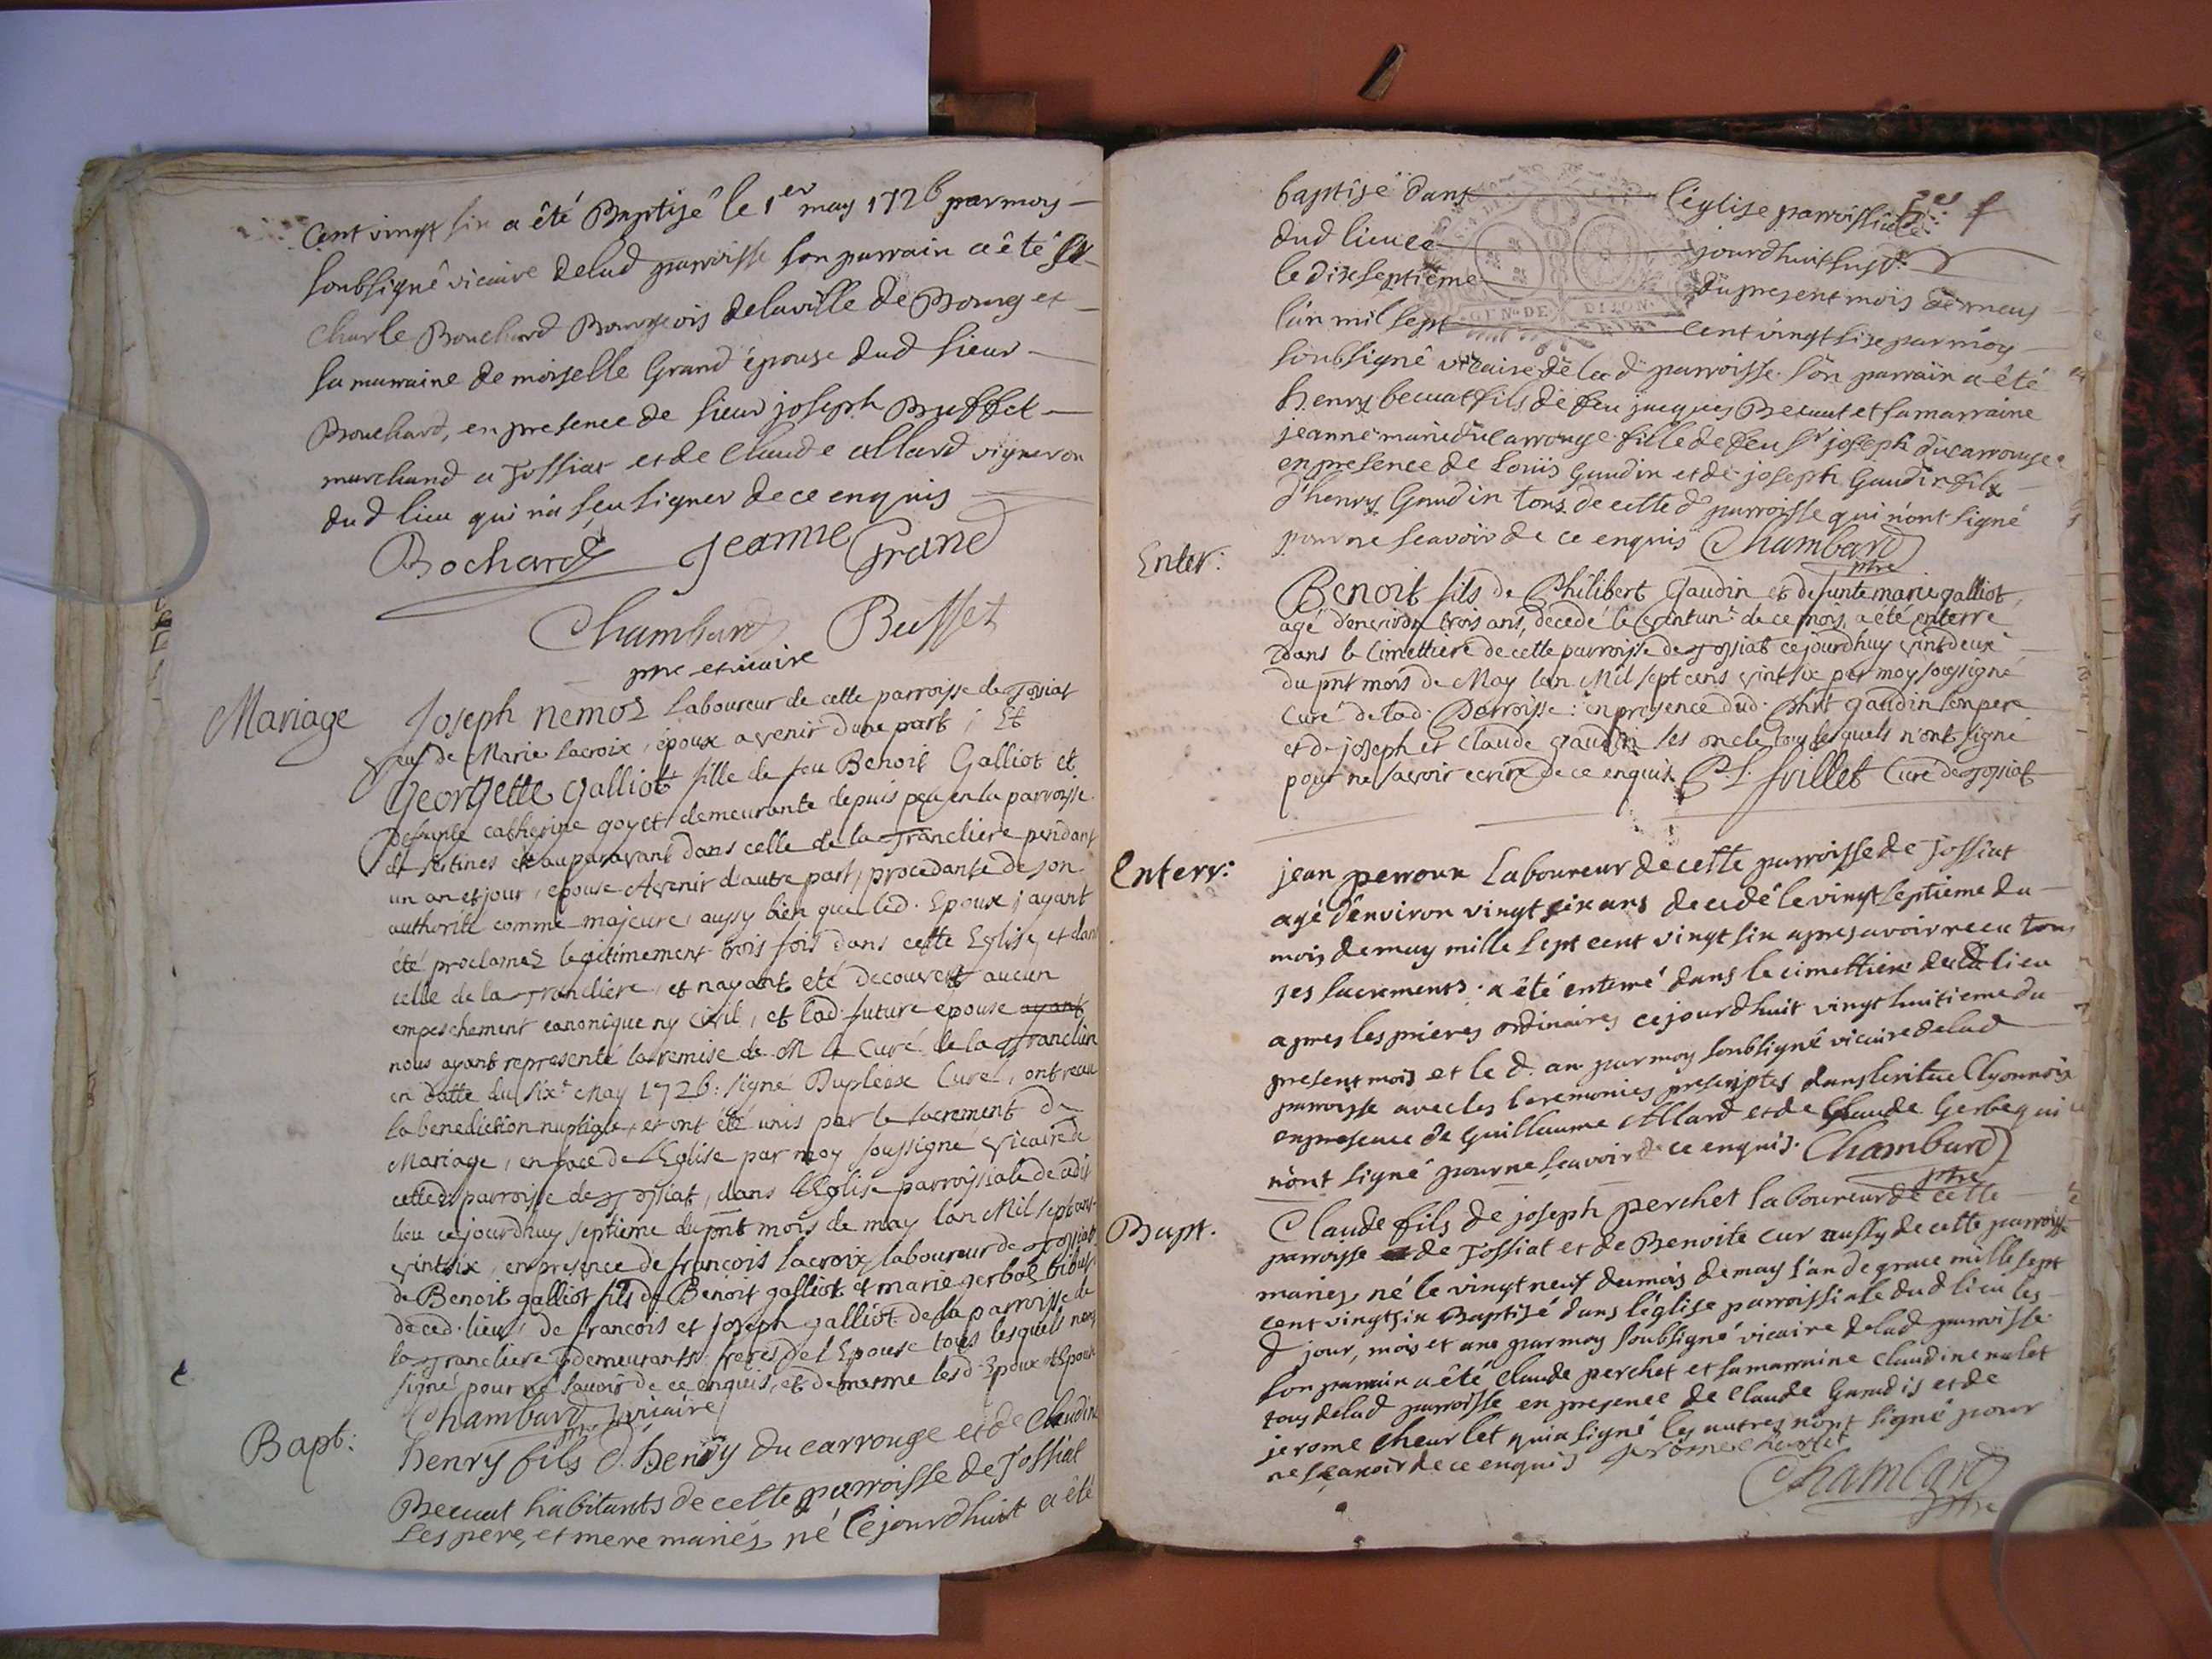 Cent vingt six a êté Baptisé le 1er may 1726 par moy
soubsigné vicaire delad parroisse son parrain a êté Sr
Charle Bouchard Bourgeois delaville de Bourg et
sa marraine demoiselle Grand épouse dud sieur
Bouchard, en presence de sieur joseph Buffet
marchand a Tossiat et de Claude Allard vigneron
dud lieu qui n'a sçeu signer de ce enquis
Bochard Jeanne Grand
Chambard Buffet
ptre et vicaire
Mariage
Joseph nemoz Laboureur de cette parroisse de Tossiat
veuf de Marie Lacroix, époux avenir dune part ; Et
Georgette Galliot fille de feu Benoit Galliot et
Defunte catherine goyet demeurante depuis peu en la parroisse
de Certines et auparavant dans celle de la Trancliere pendant
un an et jour, epouse Avenir d'autre part, procedante de son
authorité comme majeure, aussy bien que led. Epoux ; ayant
été proclamez legitimement trois fois dans cette Eglise, et dans
celle de la Trancliere, et nayant eté decouvert aucun
empeschement canonique ny civil, et lad. future epouse ayant
nous ayant representé la remise de M le Curé de la Tranclier
en datte du sixe May 1726: signé Dupleix Curé, ont receu
la benediction nuptiale, et ont été unis par le sacrement de
Mariage, en face de l'Eglise par moy soussigné Vicaire de
cette d. parroisse de Tossiat, dans l'Eglise parroissiale de cedit
lieu cejourdhuy septieme du pnt mois de may lan Mil sept cens
vintsix, en presence de francois Lacroix laboureur de Tossiat,
de Benoit galliot fils de Benoit galliot et marie gerbaz
de ced. lieu, de francois et joseph galliot de la parroisse de
la Trancliere y demeurants freres de l'Epouse tous lesquels nont
signé pour ne savoir de ce enquis, et de mesme les d. Epoux et Epouse
Chambard ptre vicaire
Bapt:
henry fils d. henry du carrouge et de Claudine
Becuat habitants de cette parroisse de Tossiat
ses pere, et mere mariés, né cejourdhuit a êté
baptisé dans l'église parroissiale
dud lieu ce jourdhuit susd.
le dixseptieme du present mois de may
l'an mil sept cent vingt six par moy
GEN. DE DIJON
soubsigné vicaire de lad parroisse. Son parrain a êté
henry becuat fils de feu jacques Becuat et sa marraine
jeanne marie ducarrouge fille de feu Sr joseph ducarrouge
en presence de Louis Gaudin et de joseph Gaudin fils
d'henry Gaudin tous de cette d parroisse qui n'ont signé
pour ne sçavoir de ce enquis Chambard
ptre
Enter:
Benoit fils de Philibert Gaudin et defunte marie galliot,
agé d'environ trois ans, decedé le vintune de ce mois, a été enterré
Dans le Cimettiere de cette parroisse de Tossiat cejourdhuy vintdeuxe
du pnt mois de May lan Mil sept cens vintsix par moy soussigné
Curé de lad. Parroisse: en presence dud. Phrt gaudin son pere
et de joseph et Claude gaudin ses oncle, tous lesquels n'ont signé
pour ne savoir ecrire de ce enquis Curé de Tossiat
Enterr:
jean perroux Laboureur de cette parroisse de Tossiat
agé d'environ vingt six ans decedé le vingt septieme du
mois de may mille sept cent vingt six apres avoir receu tous
ses sacrements. a êté enterré dans le cimettiere dud lieu
apres les prieres ordinaires cejourdhuit vingt huitieme du
present mois et le d. an par moy soubsigné vicaire delad
parroisse avec les ceremonies prescriptes dans le rituel lyonnois
en presence de Guillaume Allard et de Claude Gerbe qui
n'ont signé pour ne sçavoir de ce enquis. Chambard
ptre
Bapt.
Claude fils de joseph perchet laboureur de cette
parroisse de Tossiat et de Benoite cur aussy de cette parroisse
mariés, né le vingt neuf du mois de may l'an de grace mille sept
cent vingt six Baptisé dans l'église parroissiale dud lieu les
d jour, mois et ans par moy soubsigné vicaire delad parroisse
son parrain a êté Claude perchet et sa marraine Claudine nalet
tous delad parroisse en presence de Claude Garadis et de
jerome Cheurlet qui a signé les autres n'ont signé pour
ne sçavoir de ce enquis jerome cheurlet
Chambard
ptre